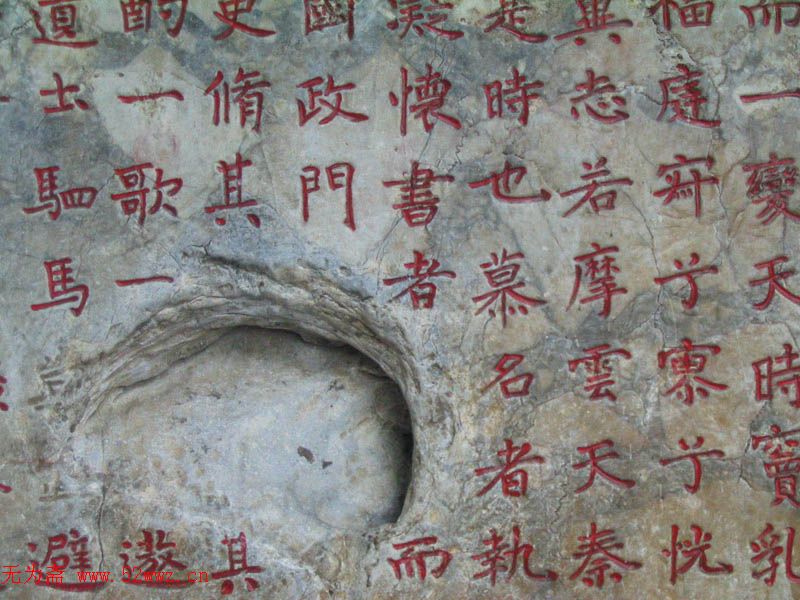 而一變天時竇乳
福庭兮寥兮恍
異志若摩雲天秦
是時也慕名者執
懷書者而
國政門
史脩其其
酌一歌一遨
道士駟馬避
无为斋 www.52wwz.cn